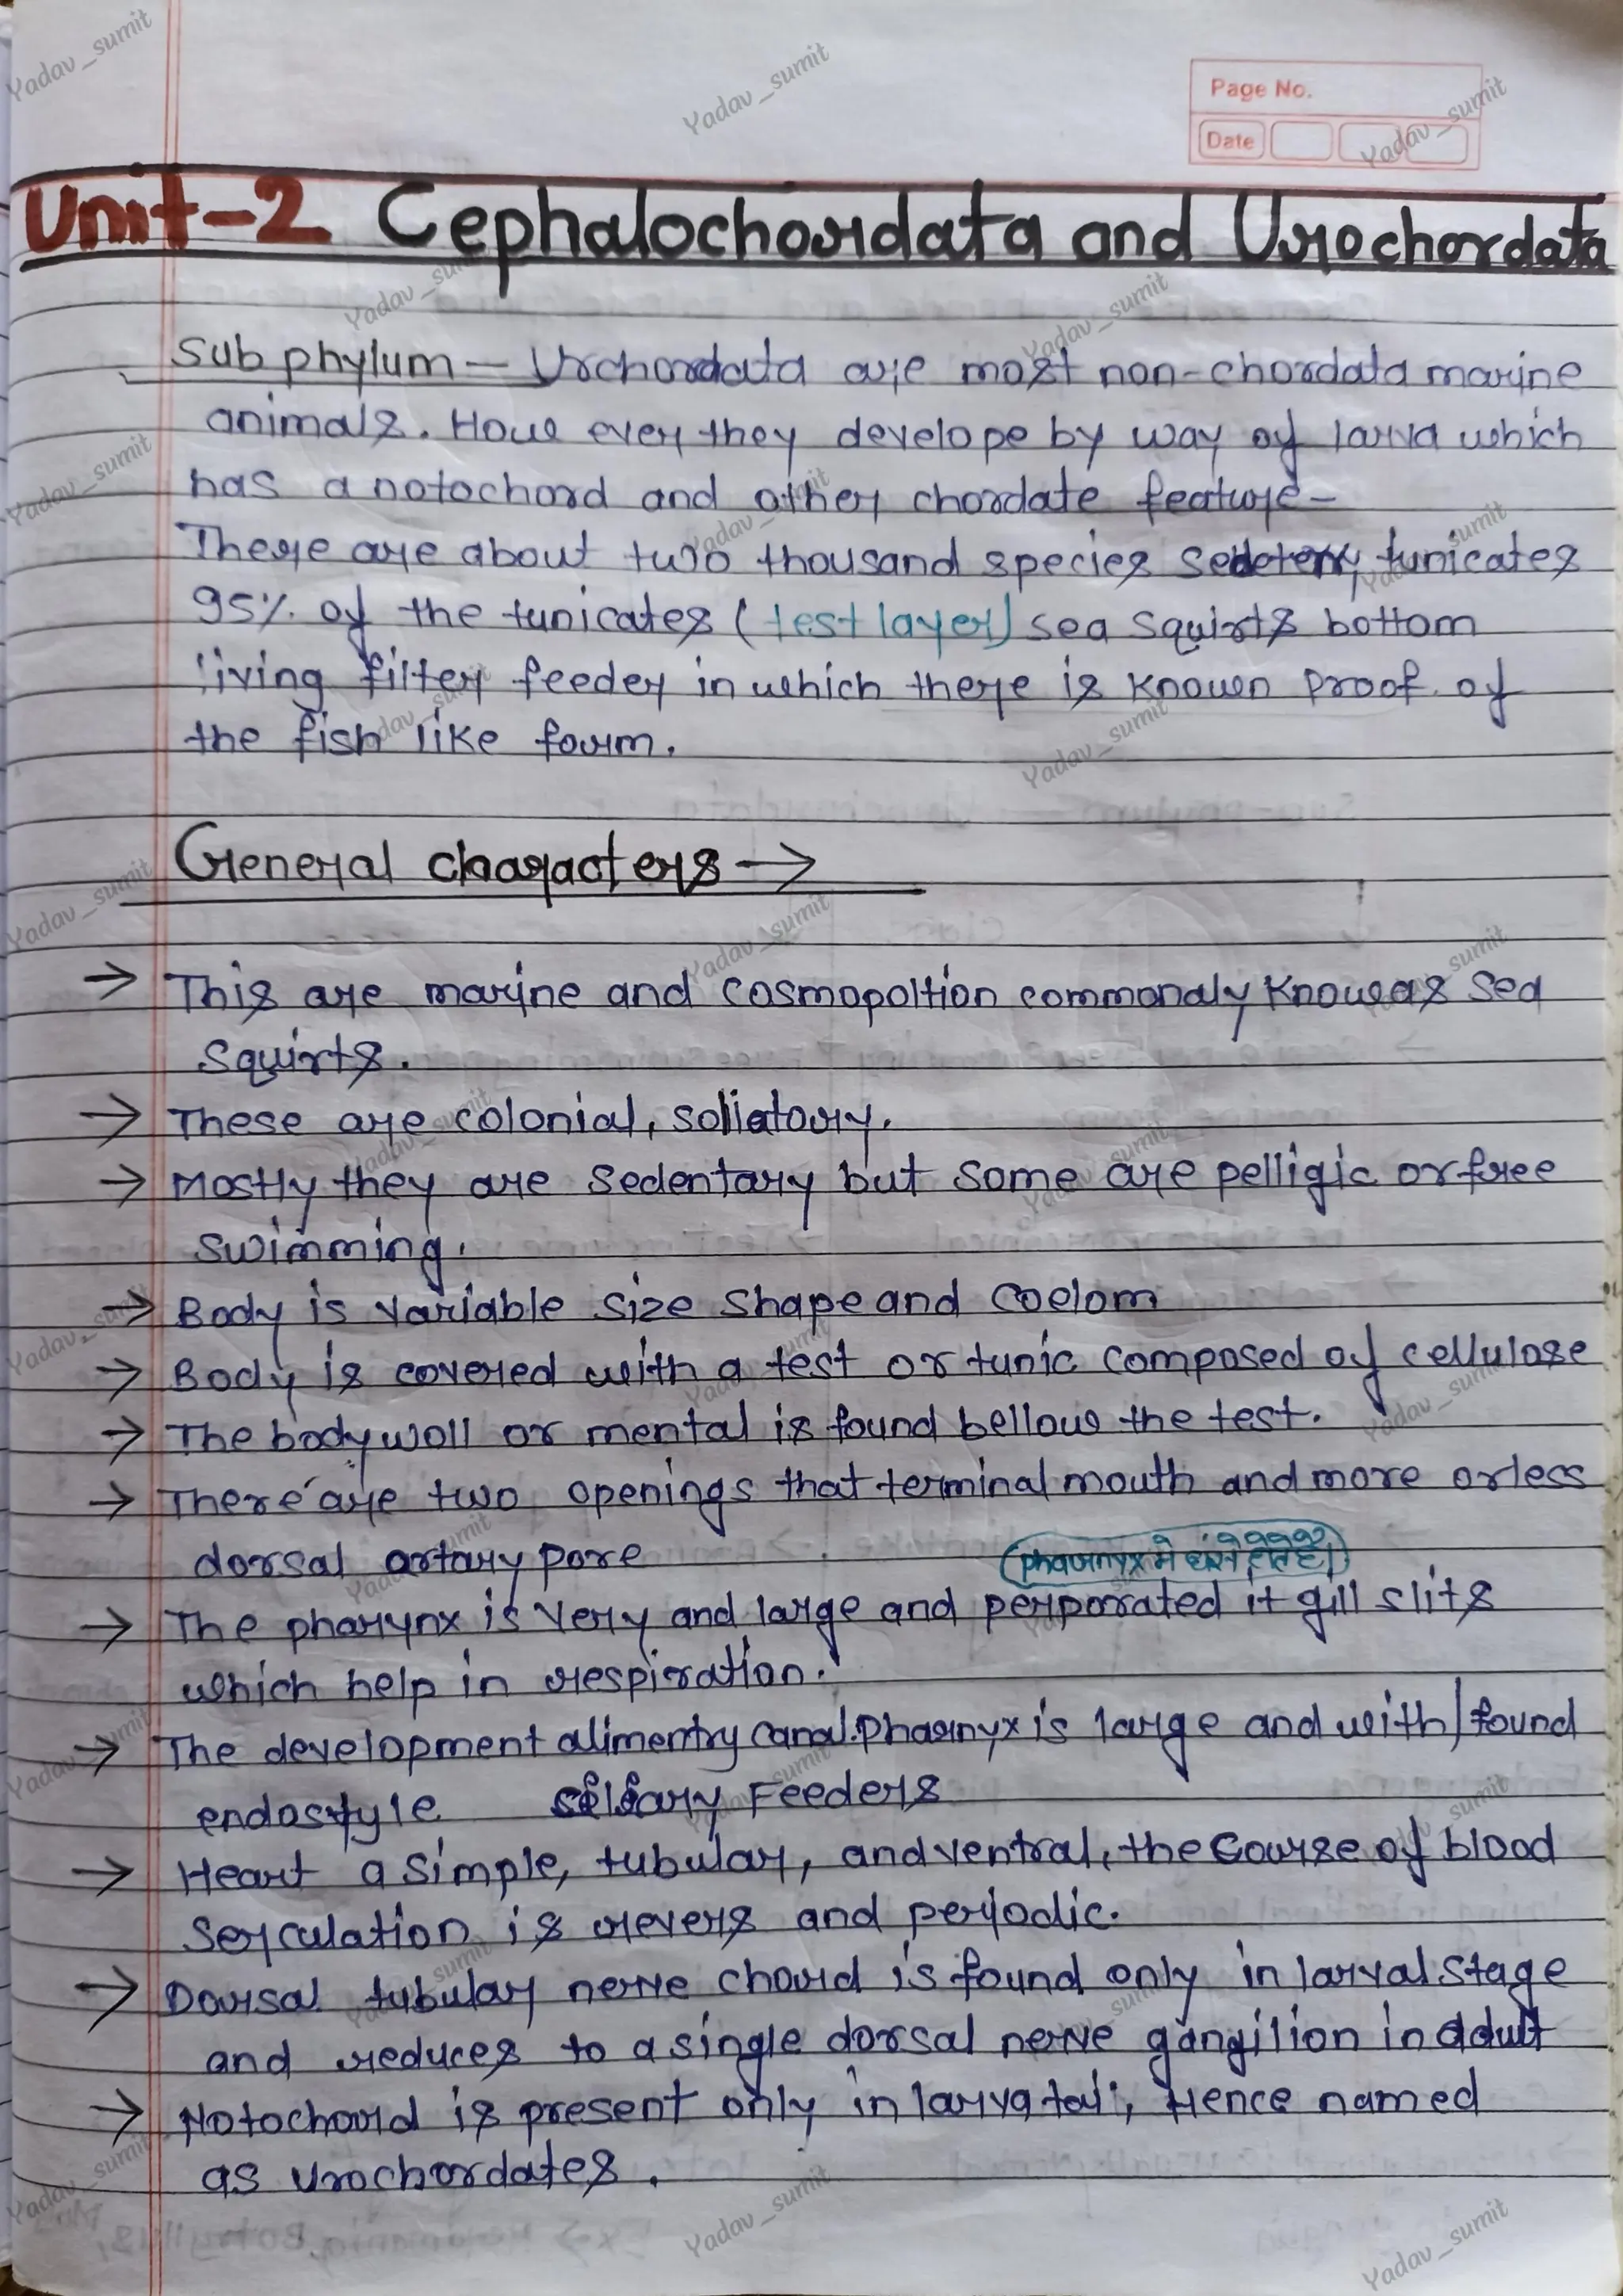 Page No.
Date
Unit-2 Cephalochordata and Urochordata
Sub phylum — Urchordata are most non-chordata marine
animals. How ever they develope by way of larva which
has a notochord and other chordate feature-
There are about two thousand species sedetery tunicates
95% of the tunicates (test layer) sea squirts bottom
living filter feeder in which there is known proof of
the fish like form.
General characters →
→ This are marine and cosmopoltion commonaly know as sea
squirts.
→ These are colonial, soliatory.
→ Mostly they are sedentary but some are pelligic or free
swimming.
→ Body is variable size shape and coelom
→ Body is covered with a test or tunic composed of cellulose
→ The body woll or mental is found bellow the test.
→ There are two openings that terminal mouth and more or less
dorsal artary pore
(pharnyx मे होते है।)
→ The pharynx is very and large and perporated it gill slits
which help in respiration.
→ The development alimentry canal. Pharnyx is large and with/found
endostyle Feeders
→ Heart a simple, tubular, and ventral, the course of blood
serculation is revers and periodic.
→ Dorsal tubular nerve chord is found only in larval stage
and reduces to a single dorsal nerve gangilion in adult
→ Notochord is present only in larva tail, Hence named
as urochordates.
Yadav_sumit